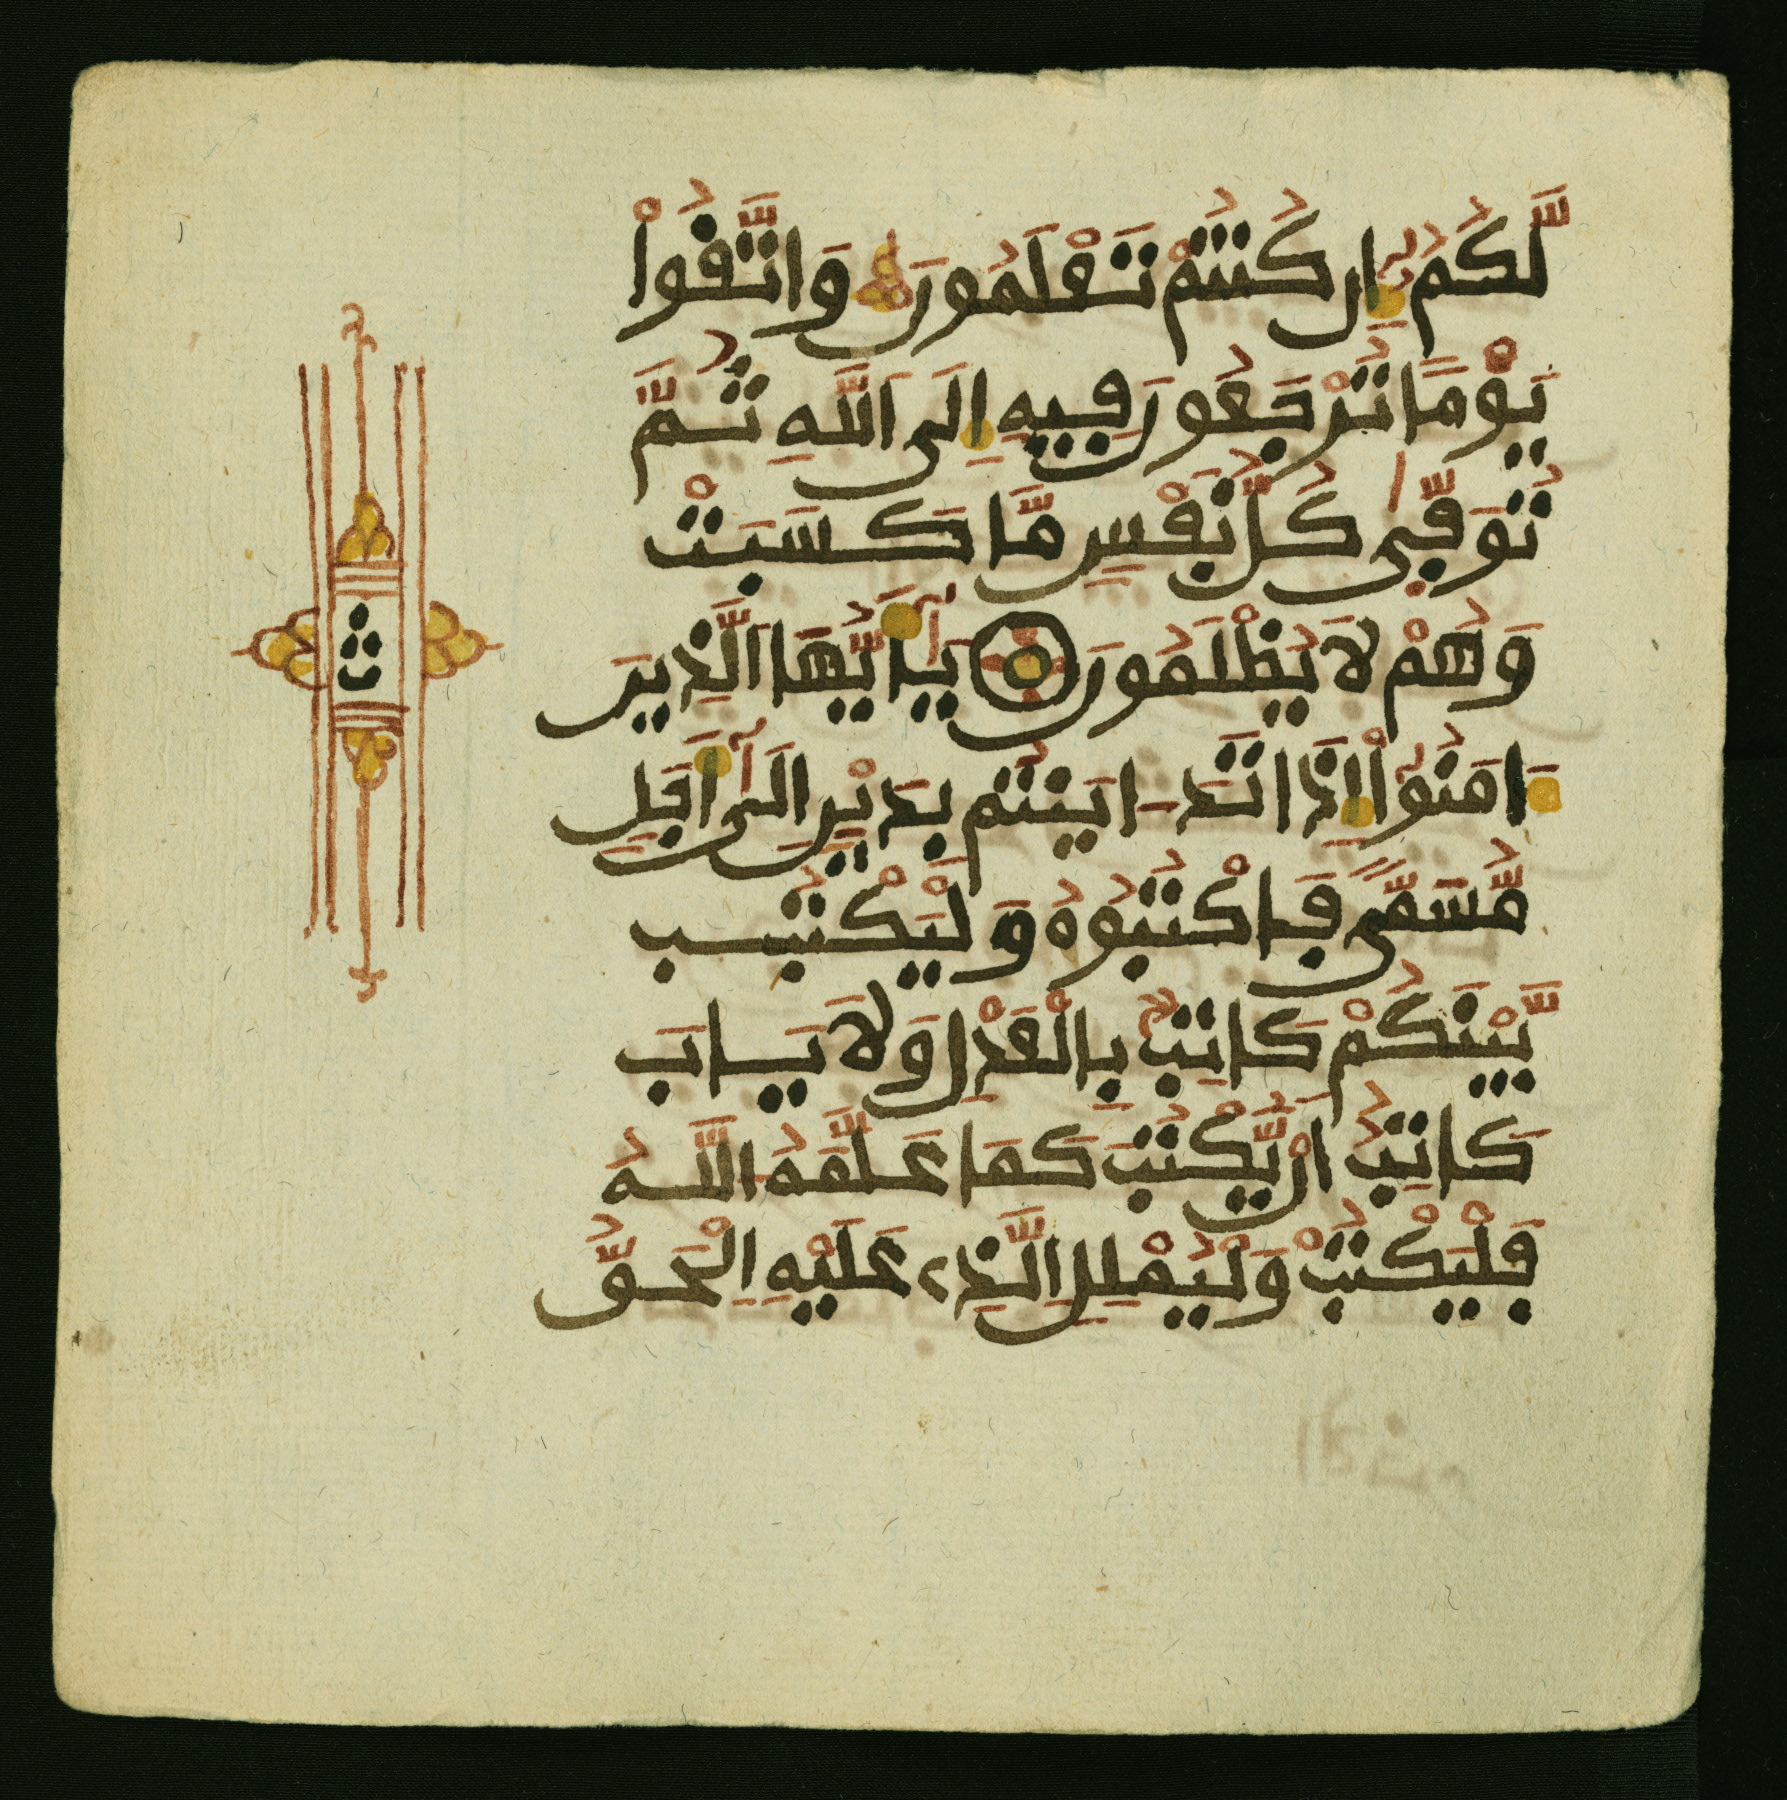 لَّكُمُۥٓ إِن كُنتُمْ تَعْلَمُونَ وَاتَّقُواْ
يَوْمًا تُرْجَعُونَ فِيهِ إِلَى اَللَّهِ ثُمَّ
تُوَفّىٰ كُلُّ نَفْسٍ مَّا كَسَبَتْ
وَهُمْ لَا يُظْلَمُونَ يَٰٓأَيُّهَا اَلَّذِينَ
ءَامَنُوٓاْ إِذَا تَدَايَنتُم بِدَيْنٍ إِلَىٰٓ أَجَلٍ
مُّسَمًّى فَاكْتُبُوهُ وَلْيَكْتُب
بَّيْنَكُمْ كَاتِبٌ بِالْعَدْلِ وَلَا يَابَ
كَاتِبٌ أَنْ يَّكْتُبَ كَمَا عَلَّمَهُ اللَّهُ
فَلْيَكْتُبْ وَلْيُمْلِلِ اِلَّذِے عَلَيْهِ اِلْحَقُّ